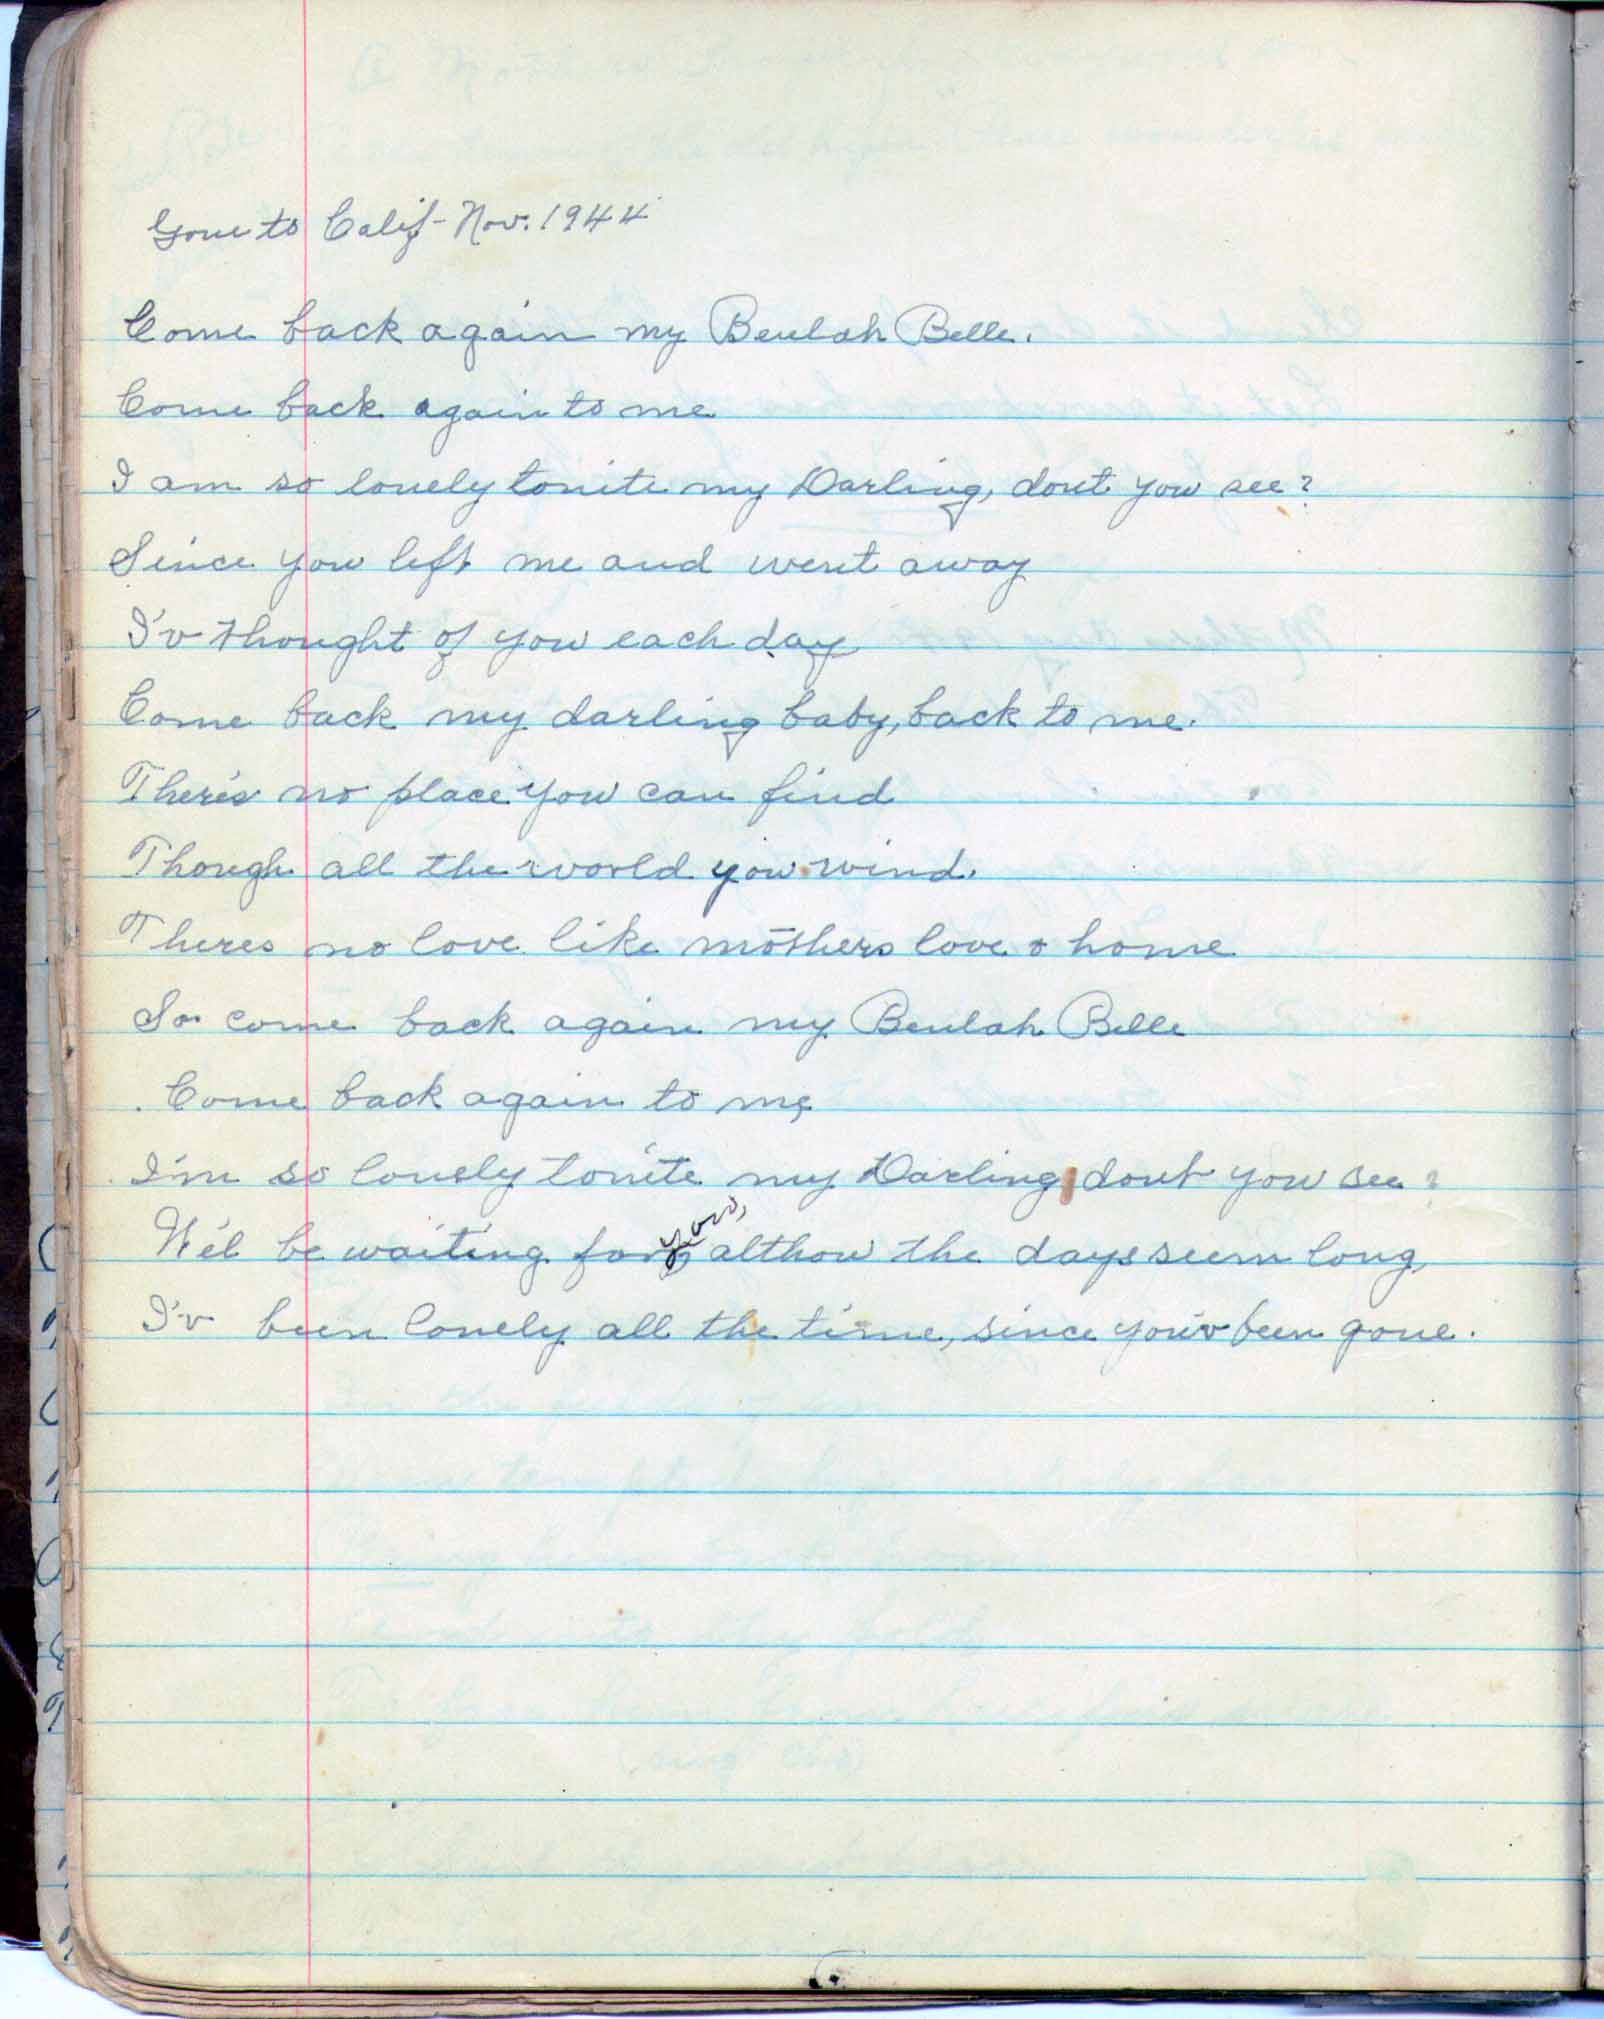 Gone to Calif - Nov. 1944
Come back again my Beulah Belle.
Come back again to me
I am so lonely tonite my Darling, dont you see?
Since you left me and went away
I'v thought of you each day
Come back my darling baby, back to me.
There's no place you can find
Though all the world you wind.
Theres no love like mothers love & home
So come back again my Beulah Belle
Come back again to me,
I'm so lonely tonite my Darling dont you see?
We'l be waiting for you, althow the days seem long,
I'v been lonely all the time, since you'v been gone.